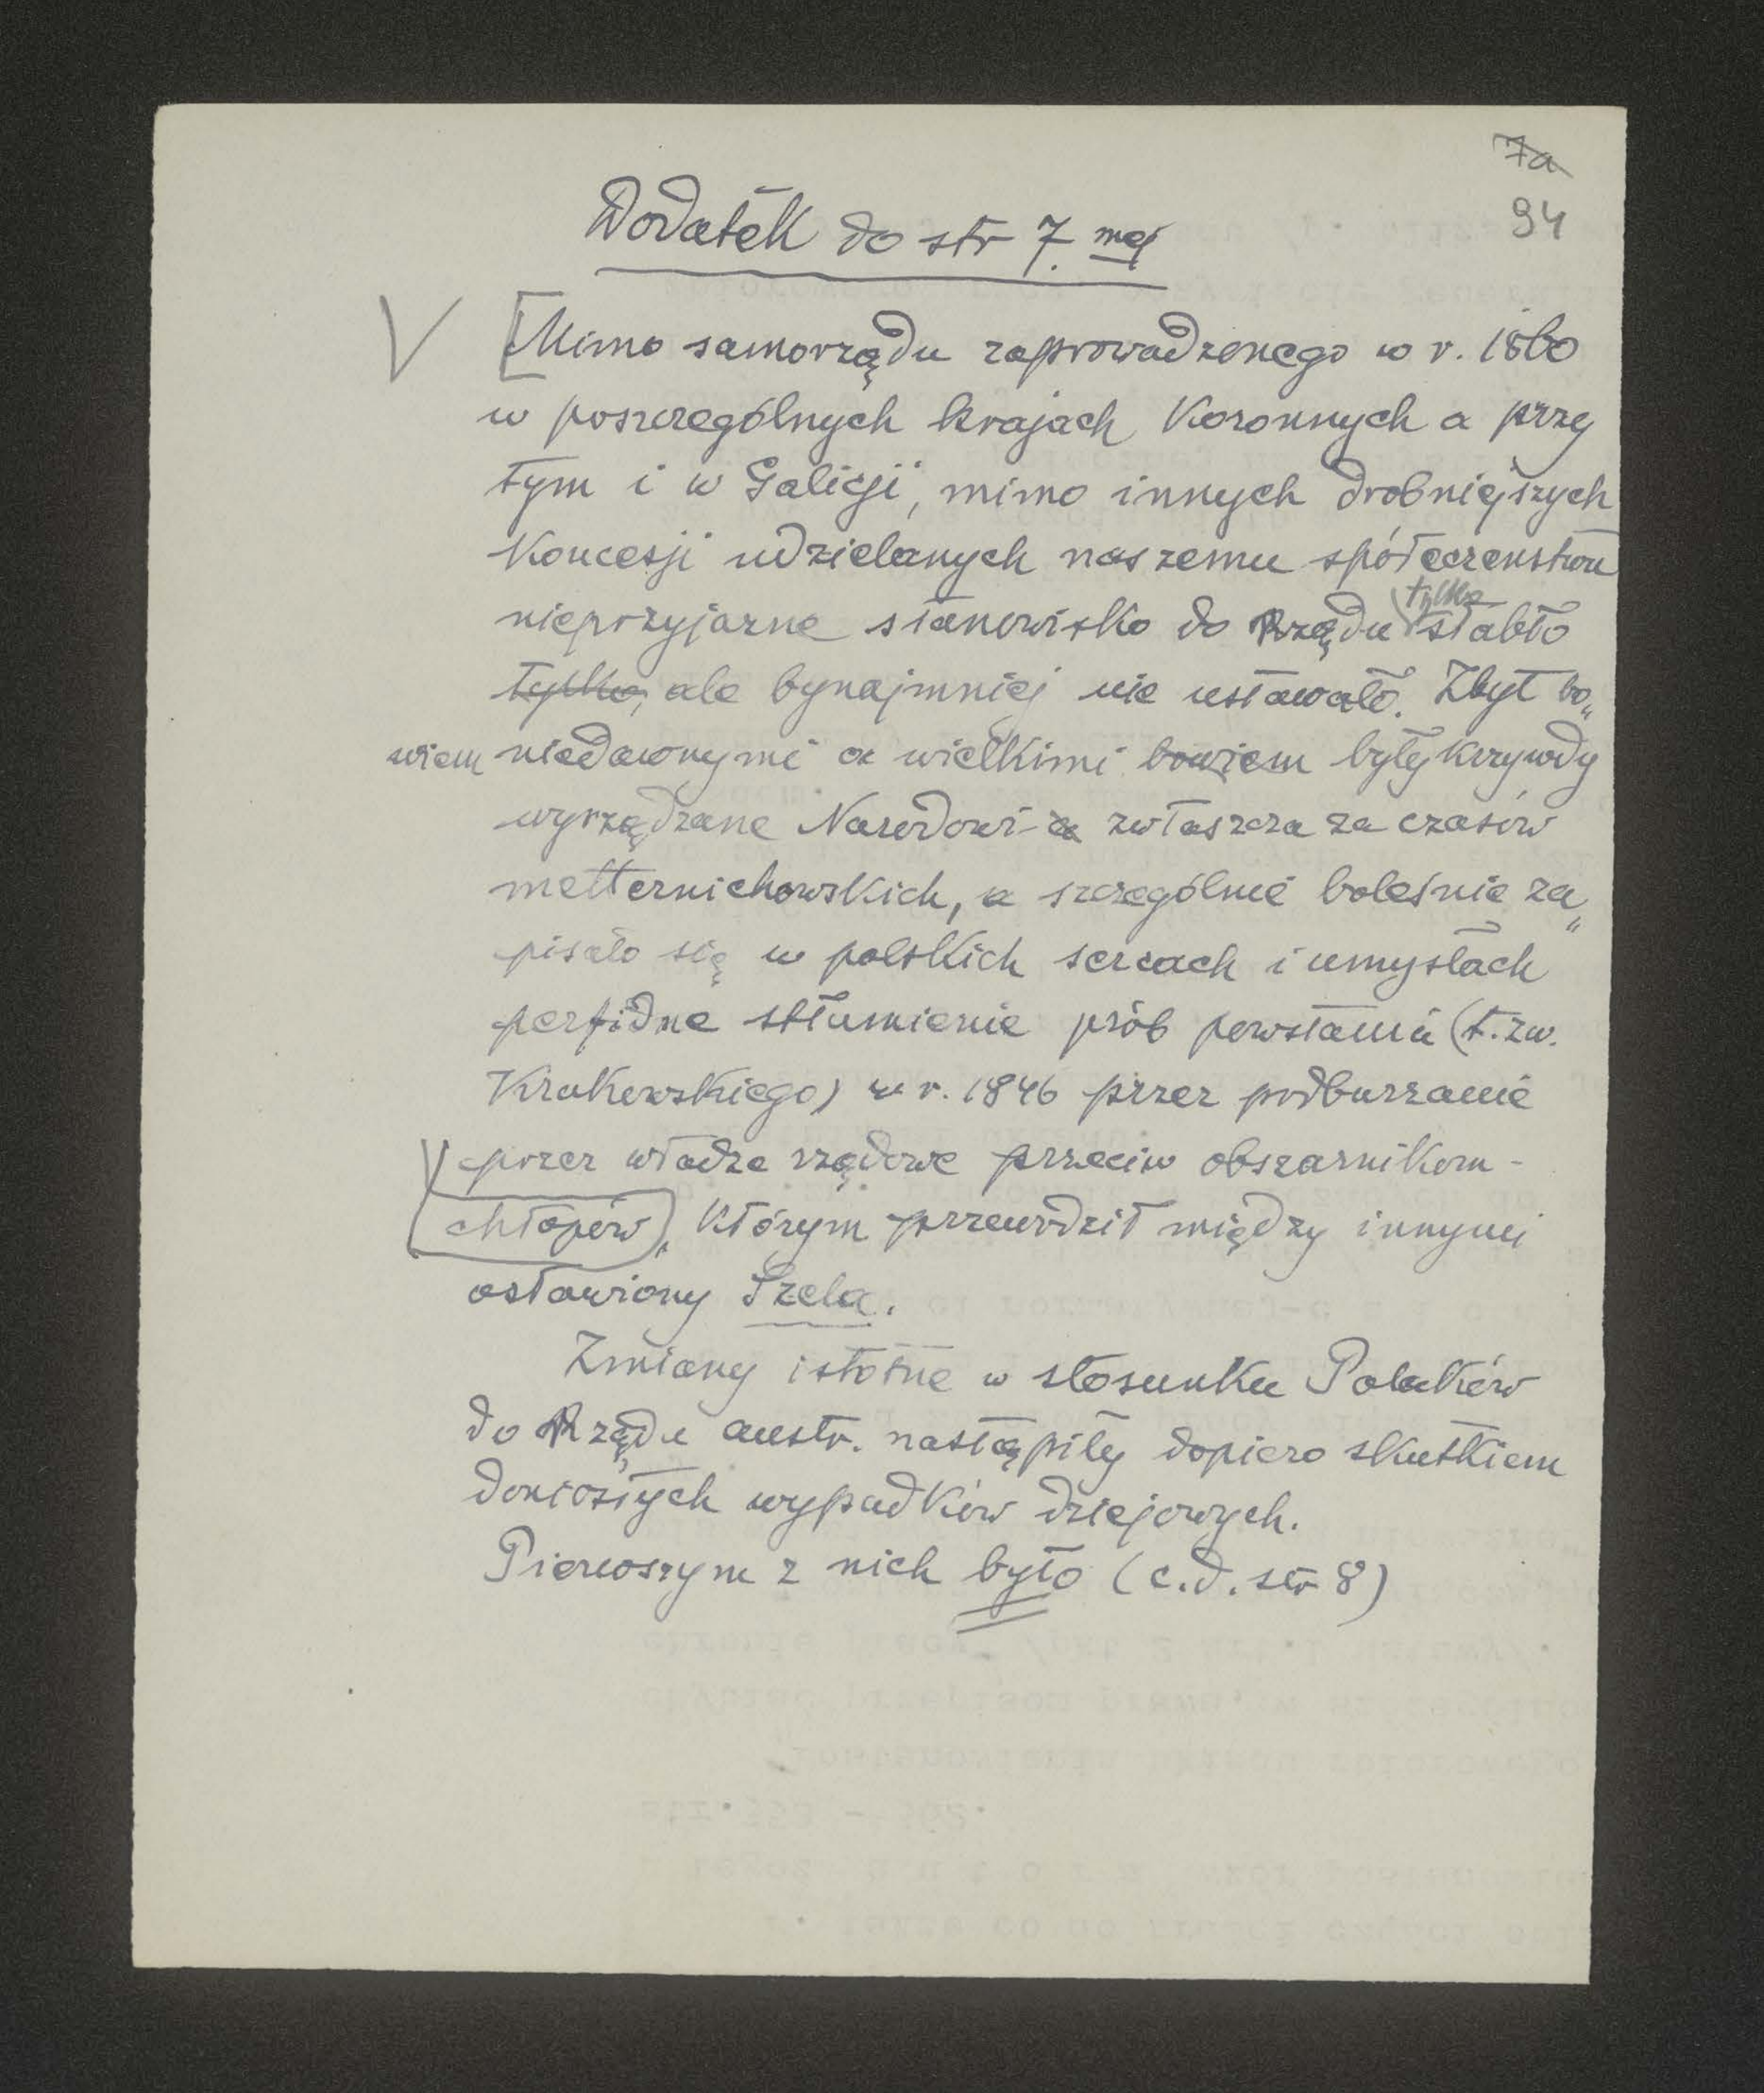 7a
94
Dodatek do str 7. mej
V [Mimo samorządu zaprowadzonego w r. 1860
w poszczególnych krajach Koronnych a przy
tym i w Galicji, mimo innych drobniejszych
Koncesji udzielanych naszemu społeczeństwu
tylko
nieprzyjazne stanowisko do Rządu słabło
tylko, ale bynajmniej nie ustawało. Zbyt bo„
wiem niedawnymi a wielkimi bowiem były krzywdy
wyrządzane Narodowi - a zwłaszcza za czasów
metternichowskich, a szczególnie boleśnie za„
pisało się w polskich sercach i umysłach
perfidne stłumienie prób powstania (t. zw.
Krakowskiego) w r. 1846 przez podburzanie
przez władze rządowe przeciw obszarnikom -
chłopów, którym przewodził między innymi
osławiony Szela.
Zmiany istotne w stosunku Polaków
do Rządu austr. nastąpiły dopiero skutkiem
doniosłych wypadków dziejowych.
Pierwszym z nich było (c.d. str 8)